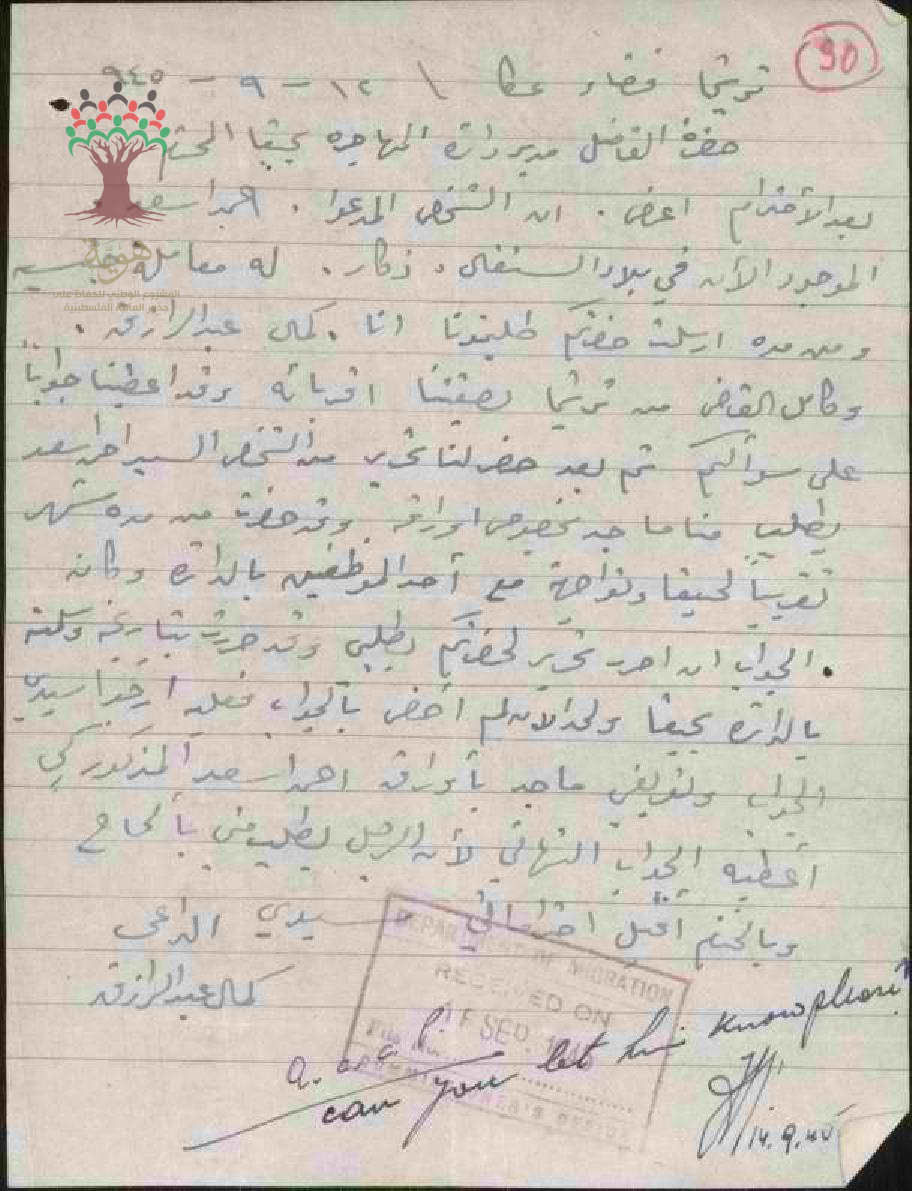 90
ترشيحا قضاء عكا \ ١٢ - ٩ - ٩٤٥
حضرة الفاضل مدير دائرة المهاجره بحيفا المحترم
بعد الأحترام اعرض . ان الشخص المدعوا . احمد اسعد .
الموجود الآن في بلاد السنغال . دكار . له معاملة جنسيه
هوية
المشروع الوطني للحفاظ على
جذور العائلة الفلسطينية
ومن مده ارسلت حضرتكم طلبتونا انا . كمال عبد الرازق .
وكامل القاضي من ترشيحا بصفتنا اقربائه وقد اعطينا جواباً
على سوآلكم ثم بعد حضر لنا تحرير من الشخص السيد احمد اسعد
يطلب منا ما جد بخصوص اوراقه وقد حضرت من مدة شهر
تقريباً لحيفا وتواجهة مع أحد الموظفين بالدائرة وكان
. الجواب ان احرر تحرير لحضرتكم بطلبي وقد حررت بتاريخه وسلمته
بالدائرة بحيفا ولحد الان لم أحض بالجواب فعليه ارجوا سيدي
الجواب وتعريفي ماجد بأوراق احمد اسعد المذكور كي
أعطيه الجواب النهائي لأن الرجل يطلب مني بألحاح
وبالختم أقبل احتراماتي سيدي الداعي
كمال عبد الرازق
DEPARTMENT OF MIGRATION
RECEIVED ON
SEP. 1945
File No. ..........
COMMISSIONER'S OFFICE
can you let him know please?
14.9.45